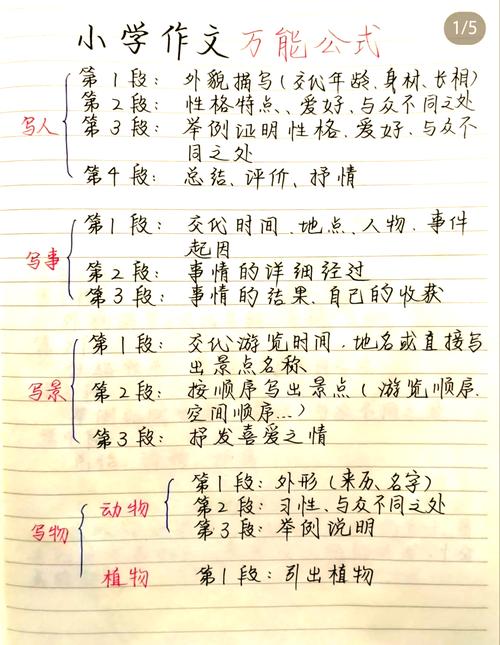 1/5
小学作文万能公式
写人
第1段：外貌描写(交代年龄、身材、长相)
第2段：性格特点、爱好、与众不同之处
第3段：举例证明性格、爱好、与众不
同之处
第4段：总结、评价、抒情
写事
第1段：交代时间、地点、人物、事件
起因
第2段：事情的详细经过
第3段：事情的结果、自己的收获
写景
第1段：交代游览时间、地名或直接写
出景点名称
第2段：按顺序写出景点(游览顺序、
空间顺序…)
第3段：抒发喜爱之情
写物
动物
第1段：外形(来历、名字)
第2段：习性、与众不同之处
第3段：举例说明
植物
第1段：引出植物